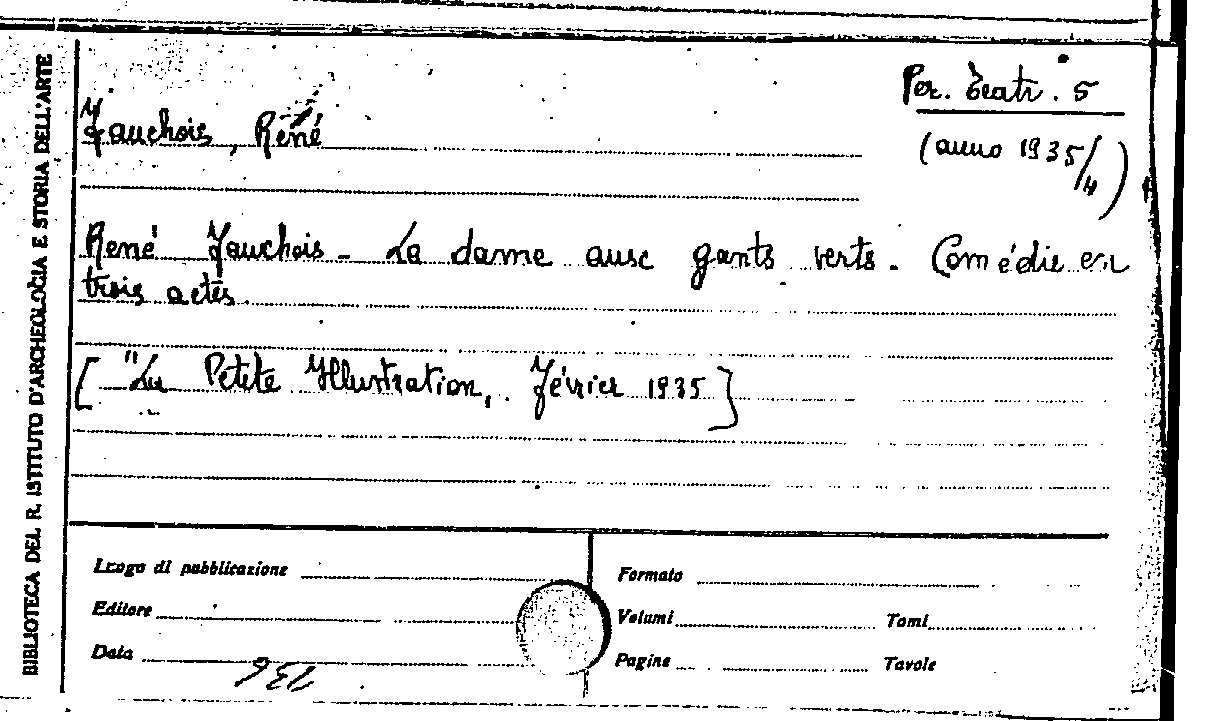 Per. Teatr. 5
Fauchois, René
(anno 1935/4)
René Fauchois - La dame aux gants verts. Comédie en
trois actes.
[ "La Petite Illustration, Février 1935 ]
BIBLIOTECA DEL R. ISTITUTO D'ARCHEOLOGIA E STORIA DELL'ARTE
Luogo di pubblicazione
Formato
Editore
Volumi Tomi
Data
Pagine Tavole